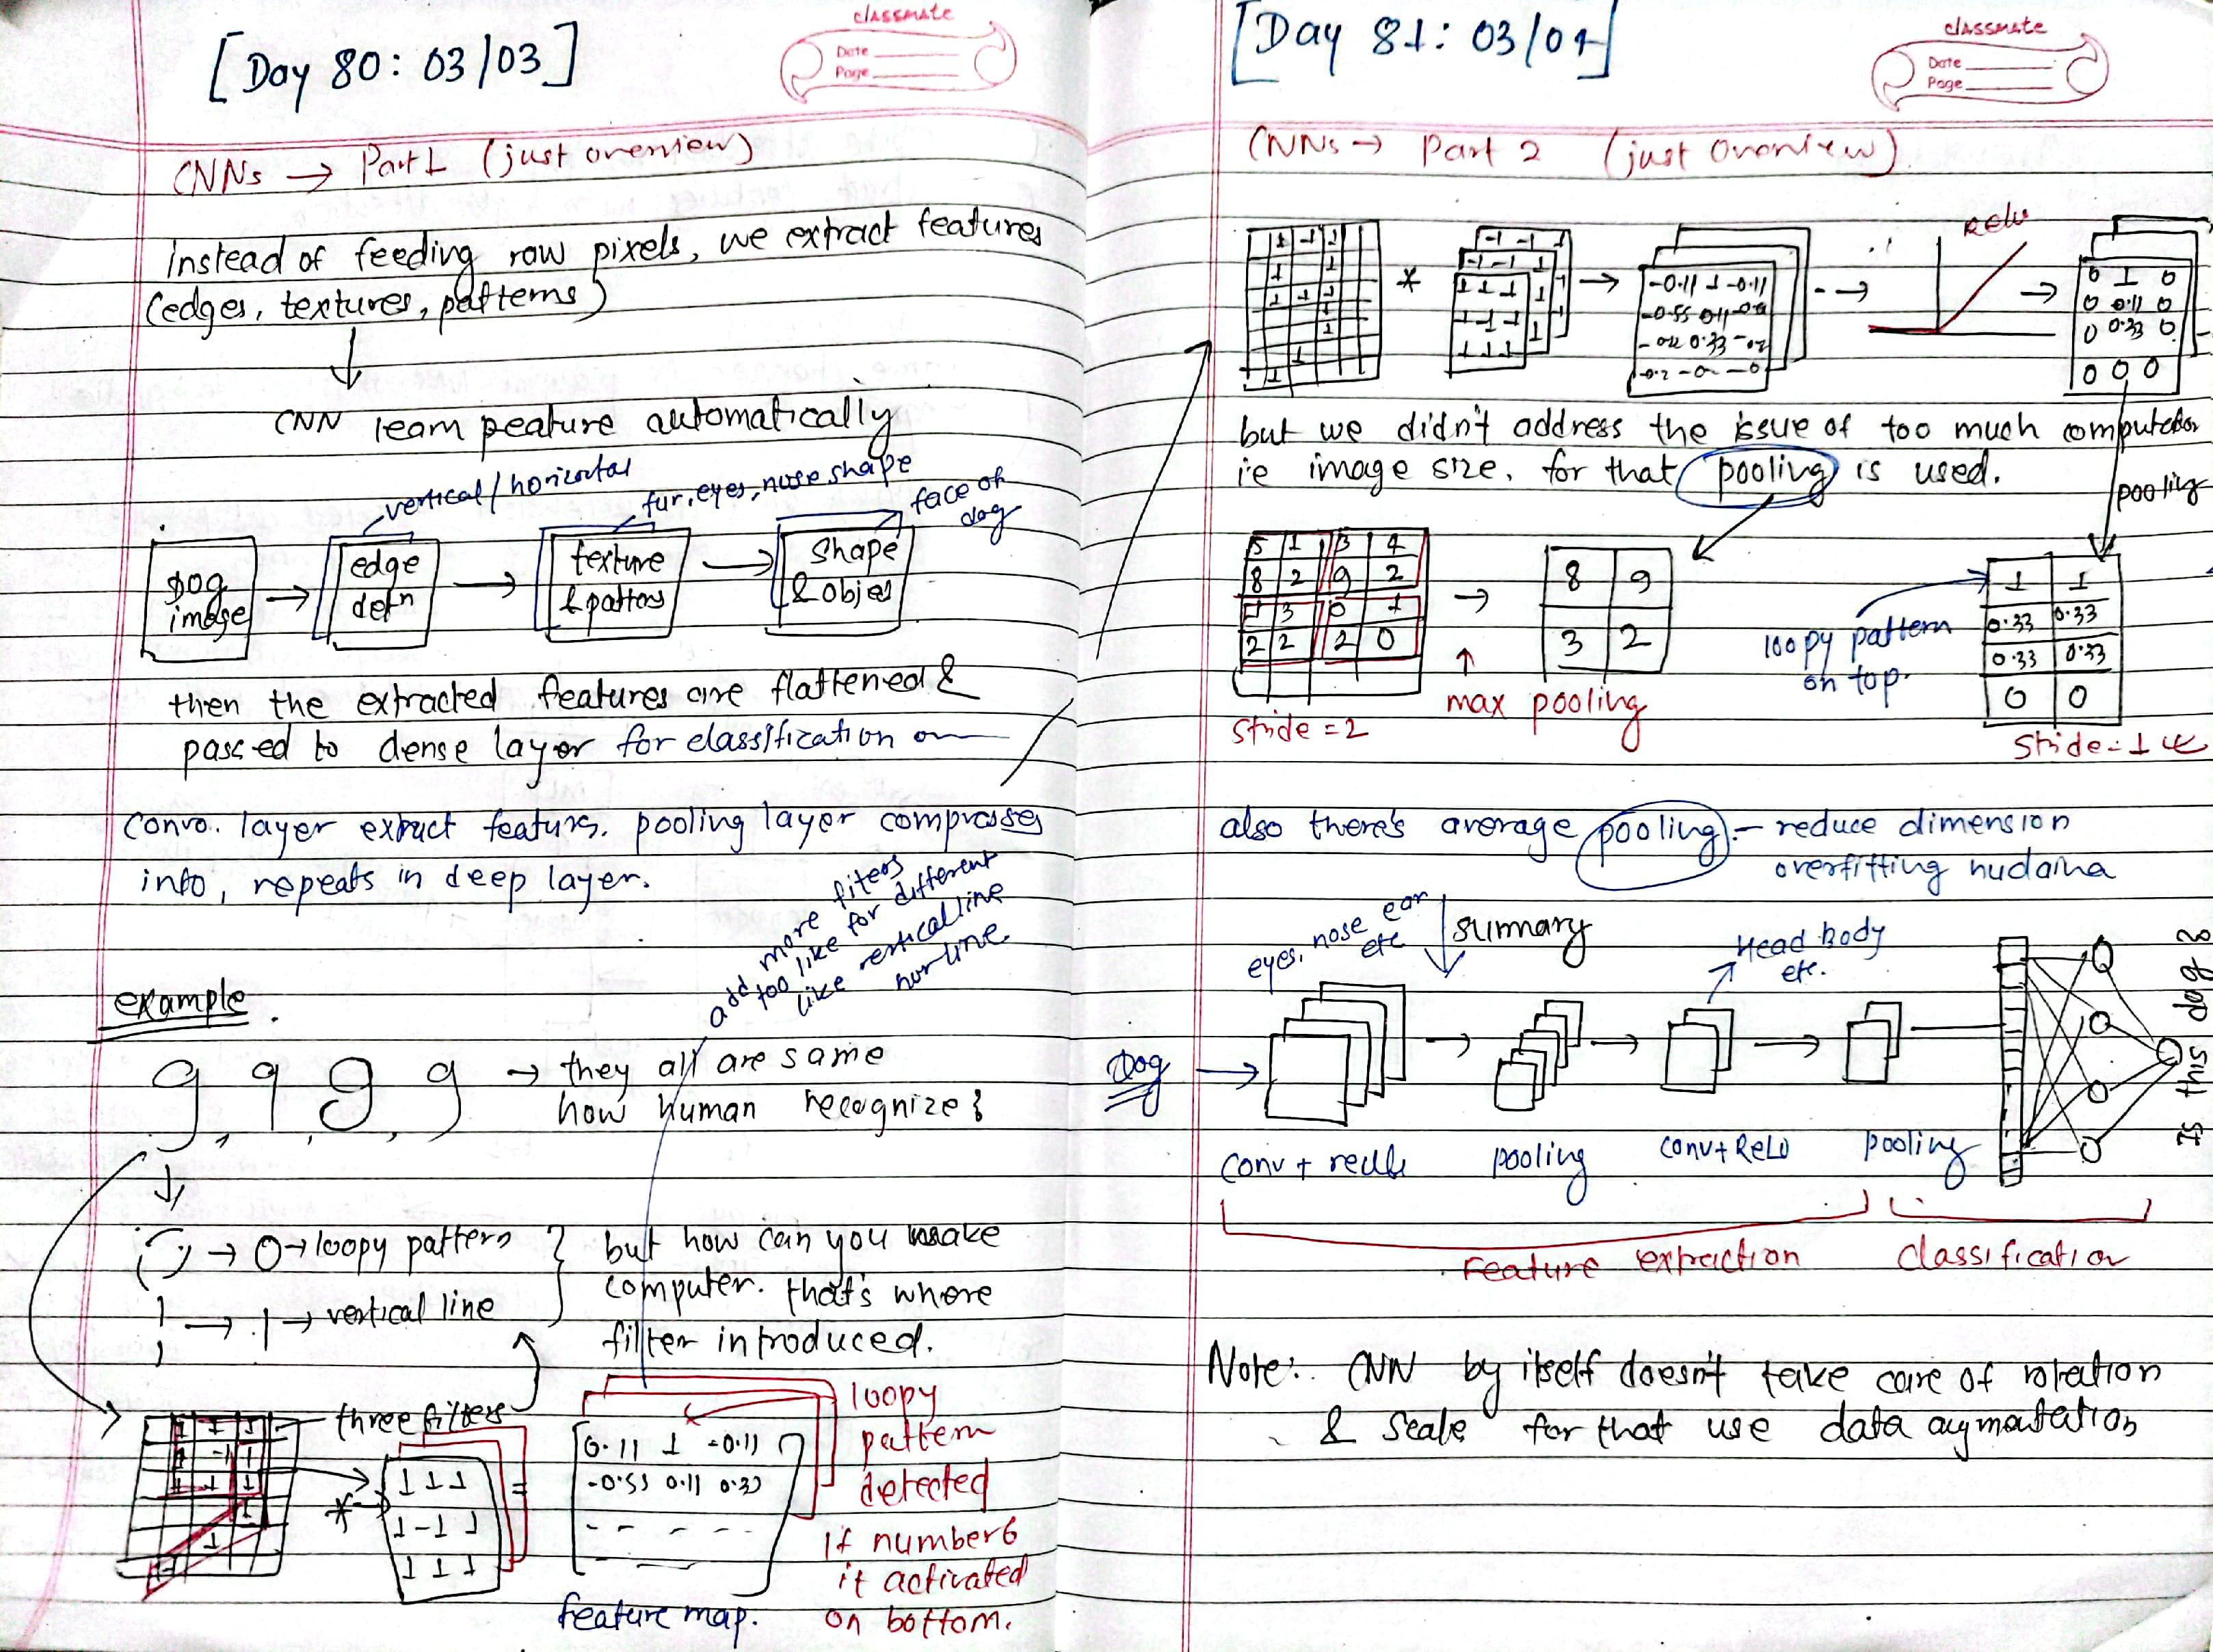 classmate
Date
Page
[Day 80: 03/03]
CNNs → Part 1 (just overview)
instead of feeding raw pixels, we extract features
(edges, textures, patterns)
CNN learn feature automatically
vertical/horizontal
fur, eyes, nose shape
face of
dog
Dog
image
edge
detn
texture
& patters
shape
& objes
then the extracted features are flattened &
passed to dense layer for classification on
convo. layer extract features. pooling layer compresses
info, repeats in deep layer.
add more fiters
too like for different
like vertical line
hor line.
example
9, 9, 9, 9 → they all are same
how human recognize?
→ 0 → loopy pattern
→ | → vertical line
but how can you make
computer. that's where
filter introduced.
three filters
1 1 1
1 -1 1
1 1 1
*
=
0.11 1 -0.11
-0.55 0.11 0.33
feature map.
loopy
pattern
detected
if number 6
it activated
on bottom.
classmate
Date
Page
[Day 81: 03/04]
CNNs → Part 2 (just overview)
*
-0.11 1 -0.11
-0.55 0.11
0.33
relu
0 1 0
0 0.11 0
0 0.33 0
0 0 0
but we didn't address the issue of too much computation
ie image size. for that pooling is used.
pooling
5 1 3 4
8 2 9 2
1 3 0 1
2 2 2 0
stride = 2
8 9
3 2
max pooling
loopy pattern
on top.
1 1
0.33 0.33
0.33 0.33
0 0
stride = 1
also there's average pooling - reduce dimension
overfitting hudaina
eyes, nose ear
etc
summary
Head body
etc.
Dog
Is this dog?
conv + relu
pooling
conv + ReLU
pooling
Feature extraction
classification
Note:. CNN by itself doesn't take care of rotation
& scale for that use data augmentation